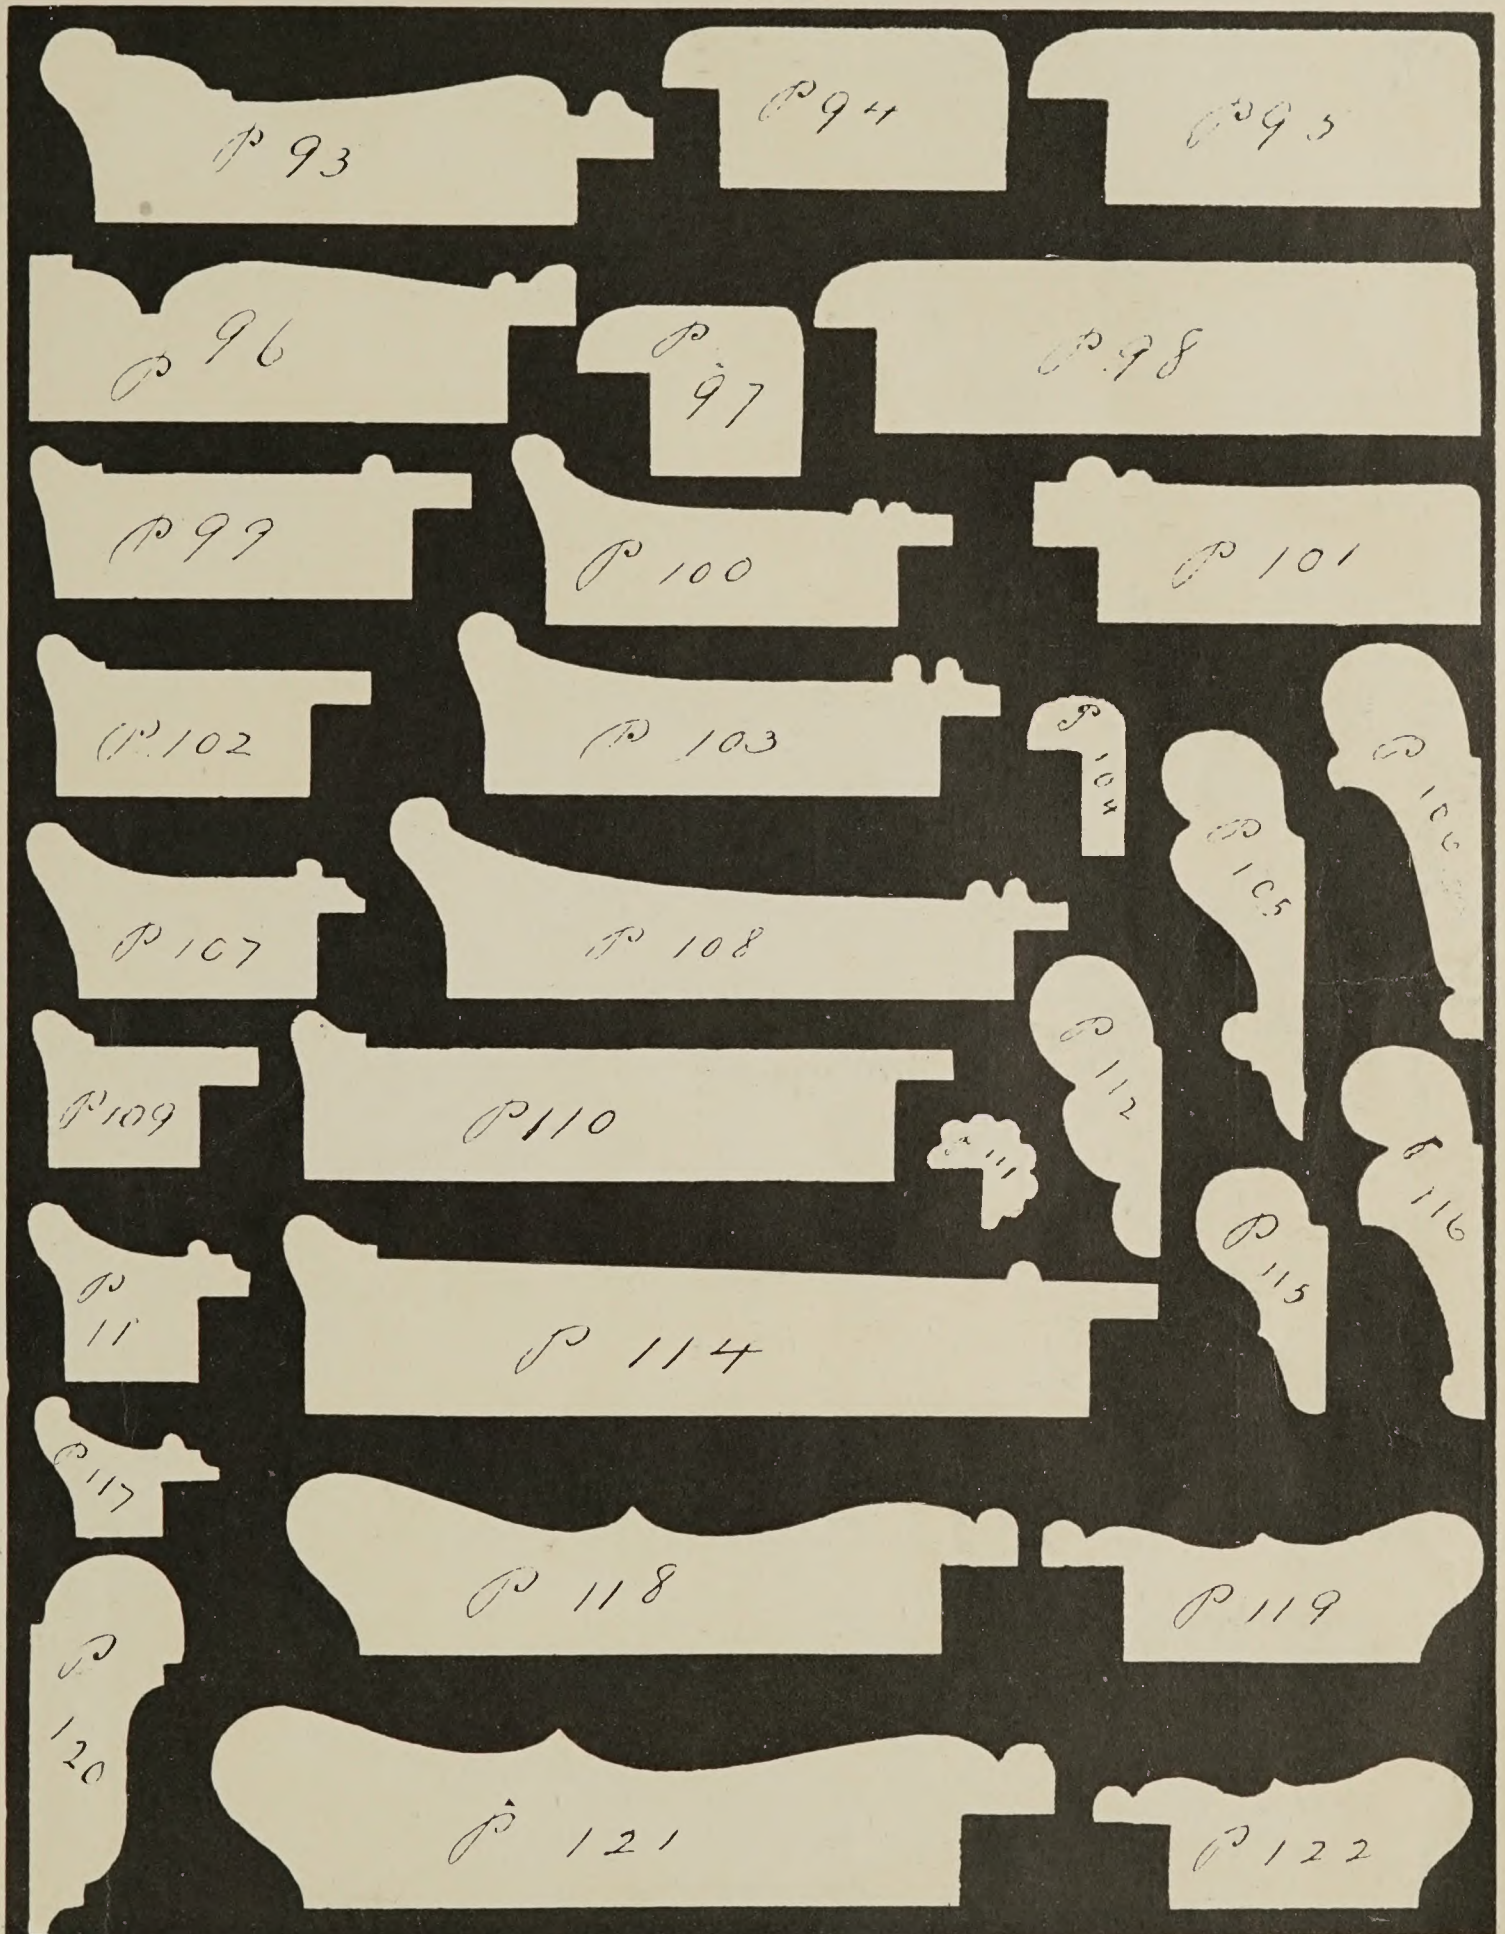 P 93
P 94
P 95
P 96
P
97
P 98
P 99
P 100
P 101
P 102
P 103
P 104
P 105
P 106
P 107
P 108
P 109
P 110
P 111
P 112
P
11
P 114
P 115
P 116
P 117
P 118
P 119
P
120
P 121
P 122